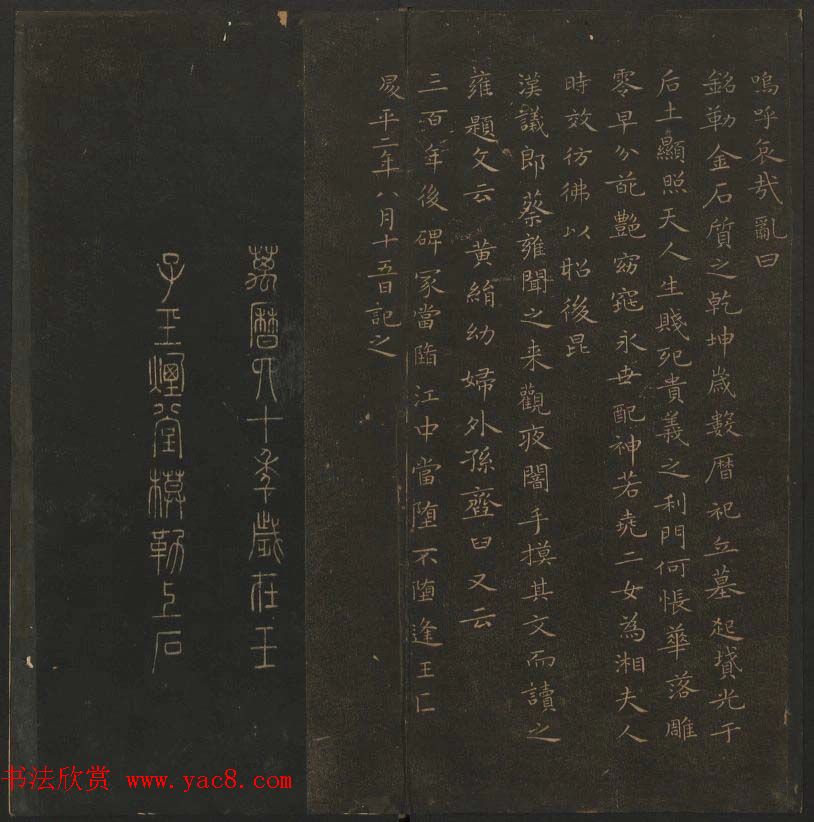 嗚呼哀哉亂曰
銘勒金石質之乾坤歲數曆祀立墓起墳光于
后土顯照天人生賤死貴義之利門何悵華落雕
零早分葩艷窈窕永世配神若堯二女為湘夫人
時效彷彿以昭後昆
漢議郎蔡雍聞之来觀夜闇手摸其文而讀之
雍題文云黃絹幼婦外孫齏臼又云
三百年後碑冢當墮江中當墮不墮逢王匚
昇平二年八月十五日記之
萬曆四十季歲在壬
子玉煙堂模勒上石
书法欣赏 www.yac8.com